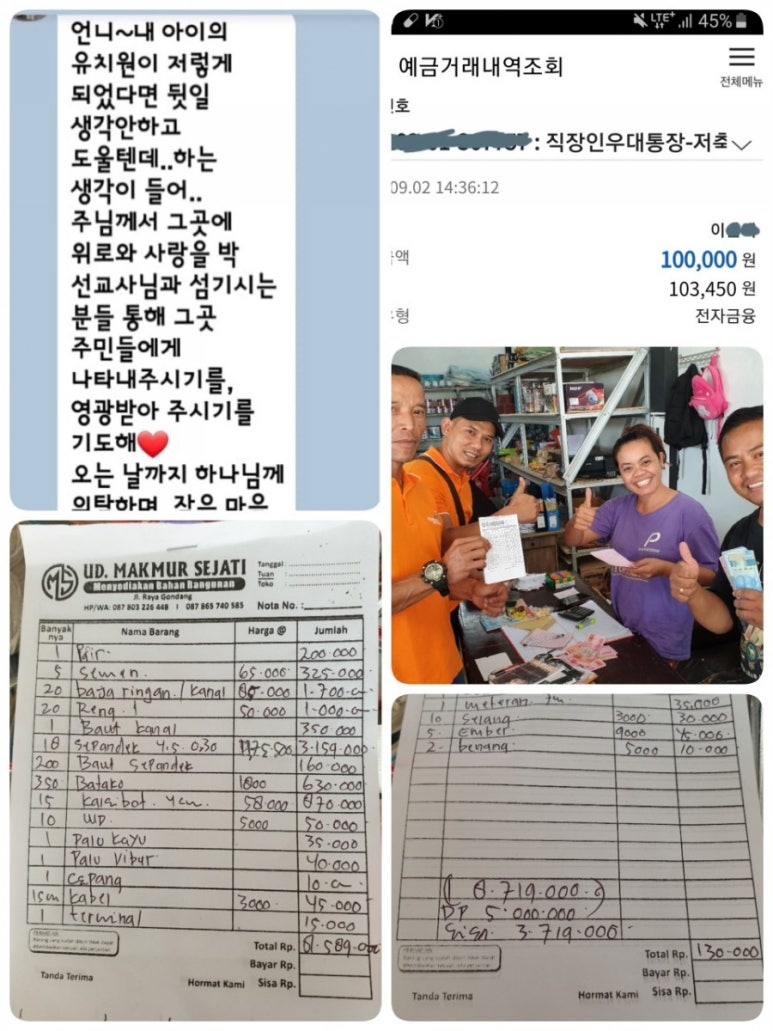 언니~내 아이의
유치원이 저렇게
되었다면 뒷일
생각안하고
도울텐데..하는
생각이 들어..
주님께서 그곳에
위로와 사랑을 박
선교사님과 섬기시는
분들 통해 그곳
주민들에게
나타내주시기를,
영광받아 주시기를
기도해❤️
오는 날까지 하나님께
LTE+ 45%
예금거래내역조회
전체메뉴
: 직장인우대통장-저축
09.02 14:36:12
이
100,000 원
103,450 원
전자금융
MS UD. MAKMUR SEJATI
Menyediakan Bahan Bangunan
Jl. Raya Gondang
HP/WA: 087 803 226 448 I 087 865 740 585
Tanggal :
Tuan :
Toko :
Nota No. :
Banyak nya Nama Barang Harga @ Jumlah
1 Pair 200.000
5 Semen 65.000 325.000
20 baja ringan / kanal 85.000 1.700.000
20 Reng 50.000 1.000.000
1 Baut kanal 350.000
18 Spandek 4.5 0.30 175.500 3.159.000
200 Baut Spandek 160.000
350 Batako 1800 630.000
15 58000 870.000
10 5000 50.000
1 Palu kayu 35.000
1 Palu 40.000
1
15m kabel 3000 45.000
1 terminal 15.000
Total Rp.
Bayar Rp.
Tanda Terima Hormat Kami Sisa Rp.
1 meteran 35.000
10 Selang 3000 30.000
5 Ember 9000 45.000
2 benang 5000 10.000
8.719.000
DP 5.000.000
Sisa 3.719.000
Total Rp. 130.000
Bayar Rp.
Tanda Terima Hormat Kami Sisa Rp.